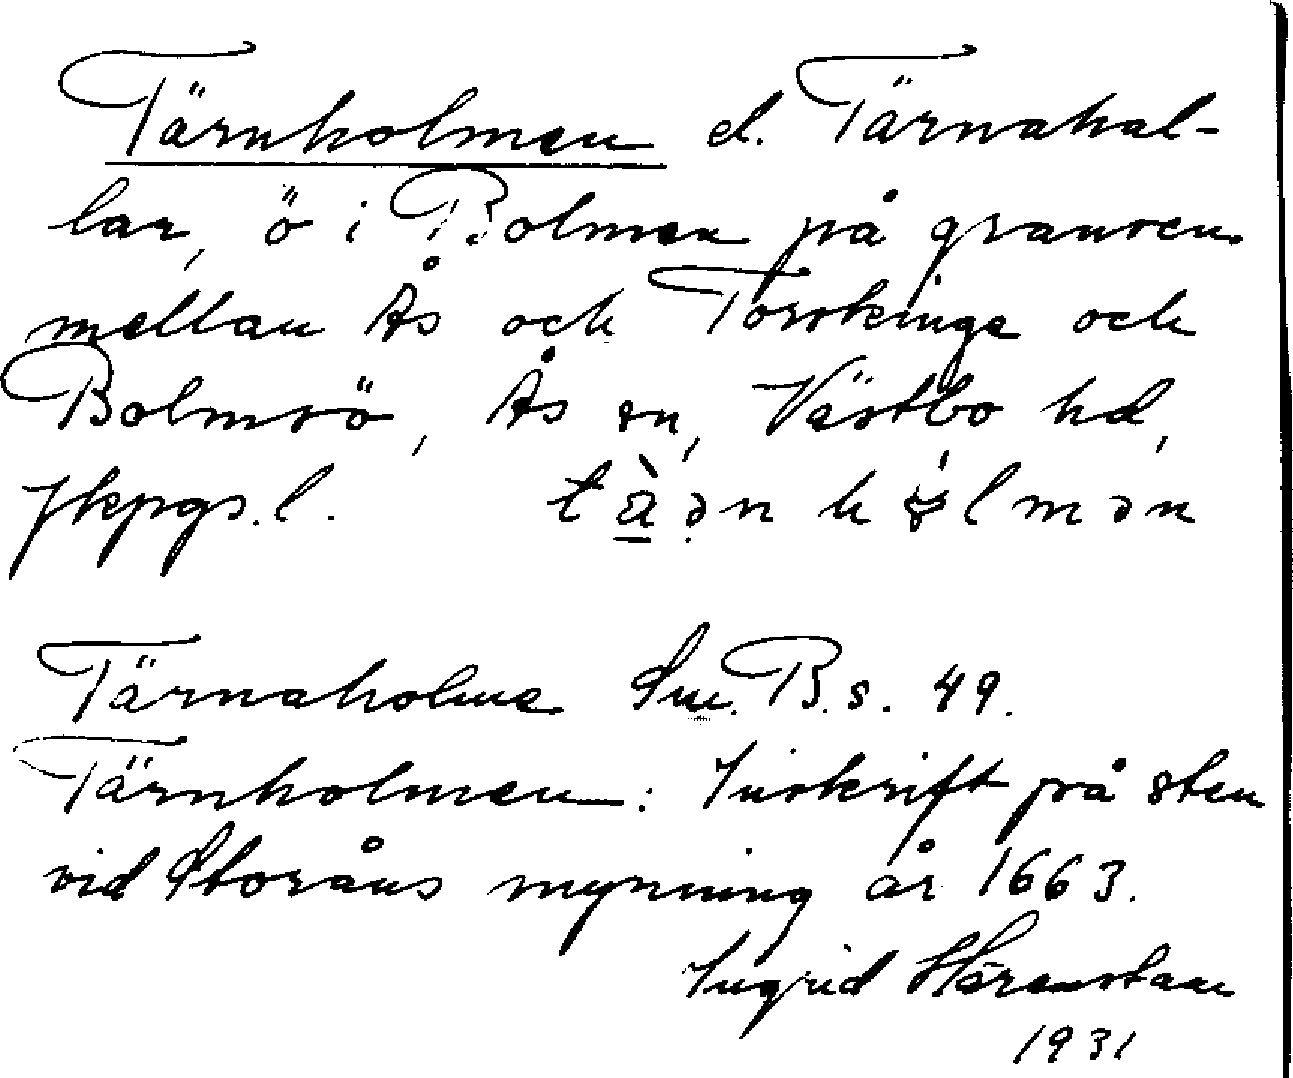 Tärnholmen el. Tärnahal-
lar, ö i Bolmen på gränsen
mellan Ås och Torskinge och
Bolmsö, Ås sn, Västbo hd,
Jkpgs. l. tä̀ən hólmən
Tärnaholme Sm. B. s. 49.
Tärnholmen: Inskrift på sten
vid Storåns mynning år 1663.
Ingrid
1931